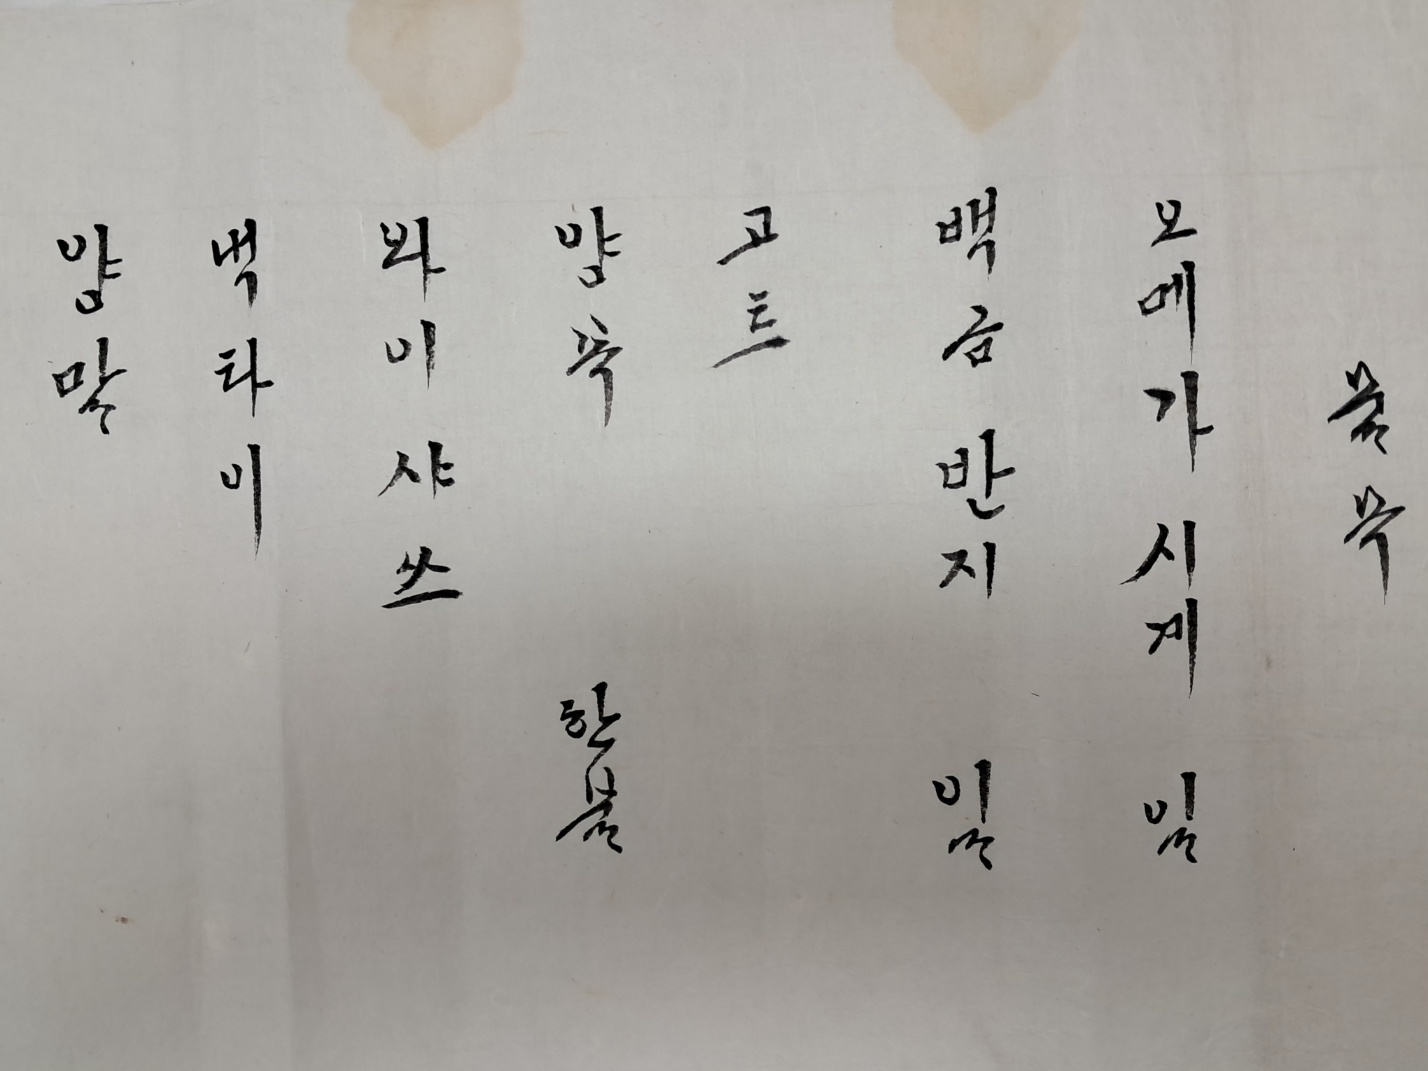 물목
오메가 시계 일
백금 반지 일
고트
양복 한불
와이샤쓰
넥타이
양말